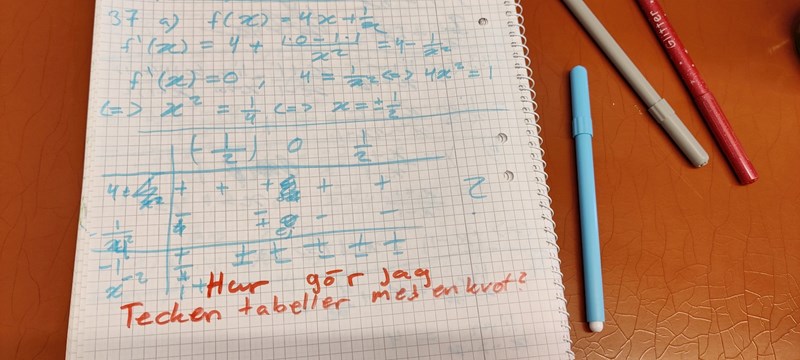 37 a) f(x) = 4x + 1/x
f'(x) = 4 + (1·0 - 1·1)/x² = 4 - 1/x²
f'(x) = 0, 4 = 1/x² <=> 4x² = 1
<=> x² = 1/4 <=> x = ±1/2
(-1/2) 0 1/2
+ + + + +
- 1/x²
-1
x⁻²
Hur gör jag
Tecken tabeller med en kvot?
Glitter